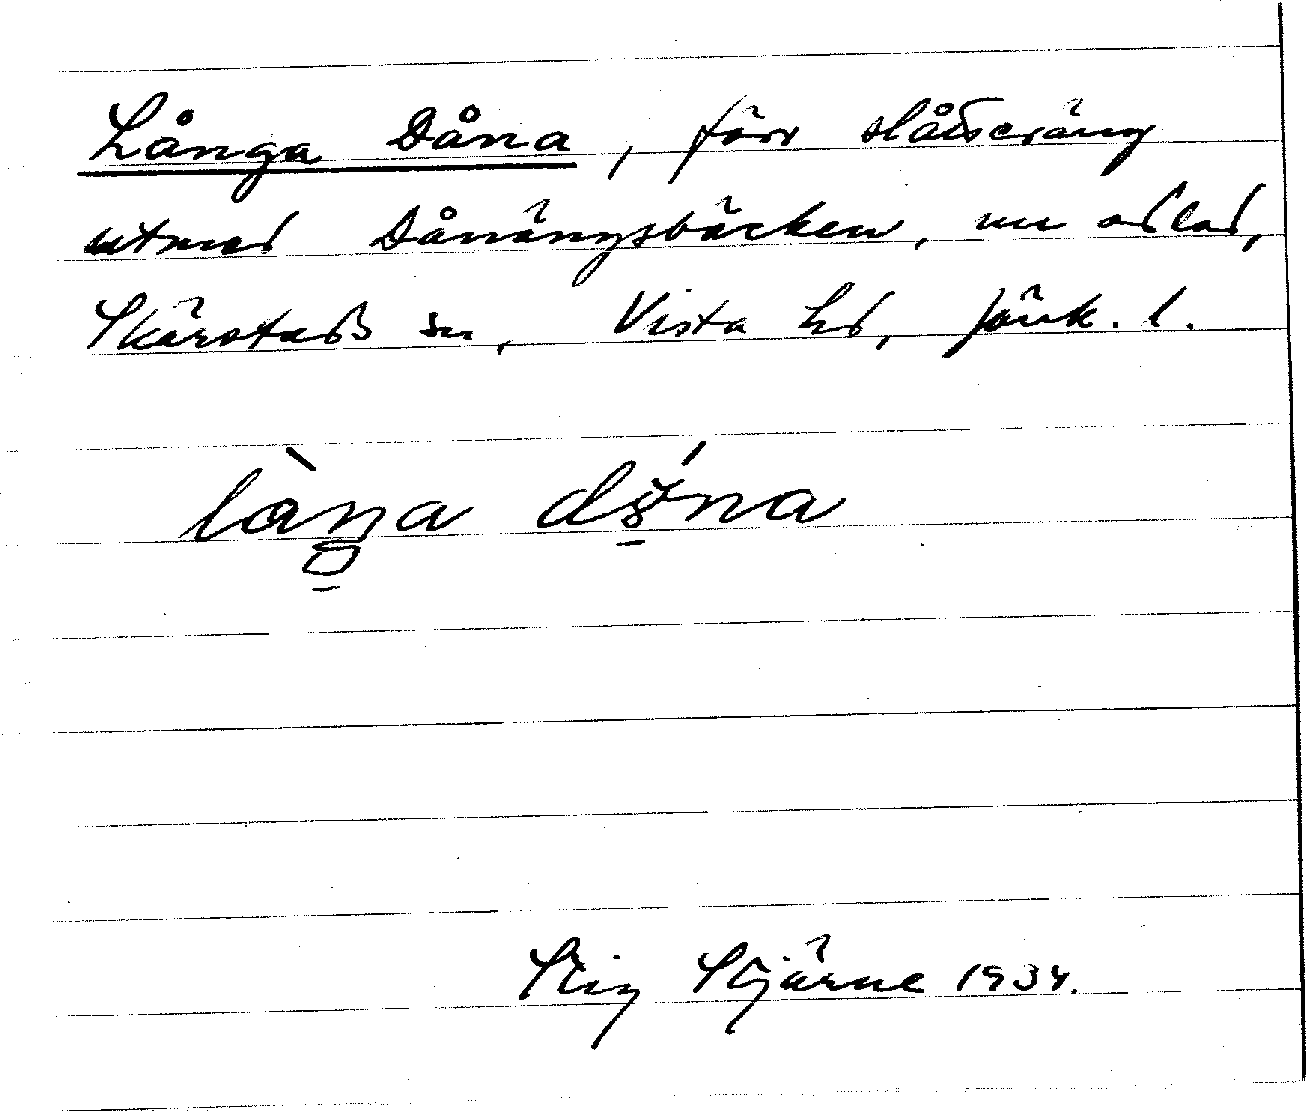 Långa Dåna, förr slåtteräng
utmed Dånängsbäcken, nu odlad,
Skärstads sn, Vista hd, Jönk. l.
làŋa dó̤na
Stig Stjärne 1934.